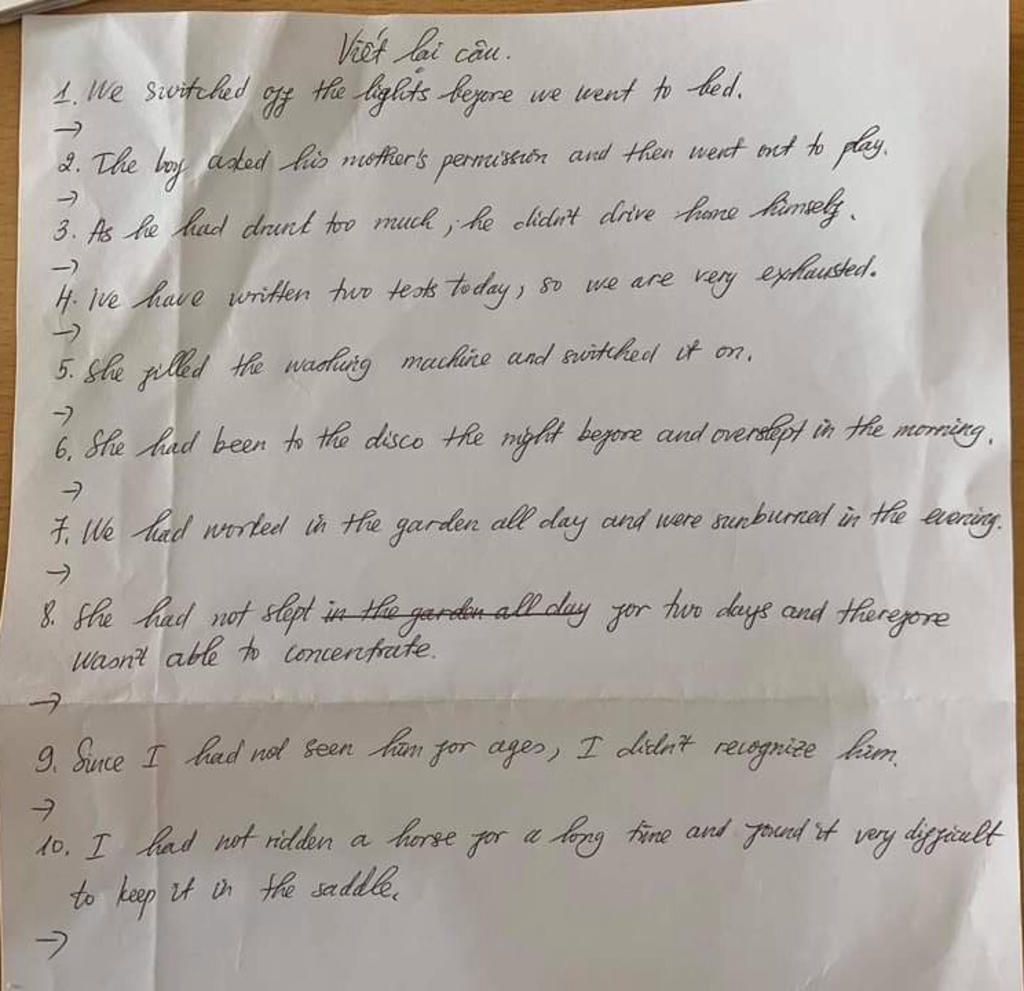 Viết lại câu.
1. We switched off the lights before we went to bed.
→
2. The boy asked his mother's permission and then went out to play.
→
3. As he had drunk too much, he didn't drive home himself.
→
4. We have written two tests today, so we are very exhausted.
→
5. She filled the washing machine and switched it on.
→
6. She had been to the disco the night before and overslept in the morning.
→
7. We had worked in the garden all day and were sunburned in the evening.
→
8. She had not slept in the garden all day for two days and therefore
wasn't able to concentrate.
→
9. Since I had not seen him for ages, I didn't recognize him.
→
10. I had not ridden a horse for a long time and found it very difficult
to keep it in the saddle.
→